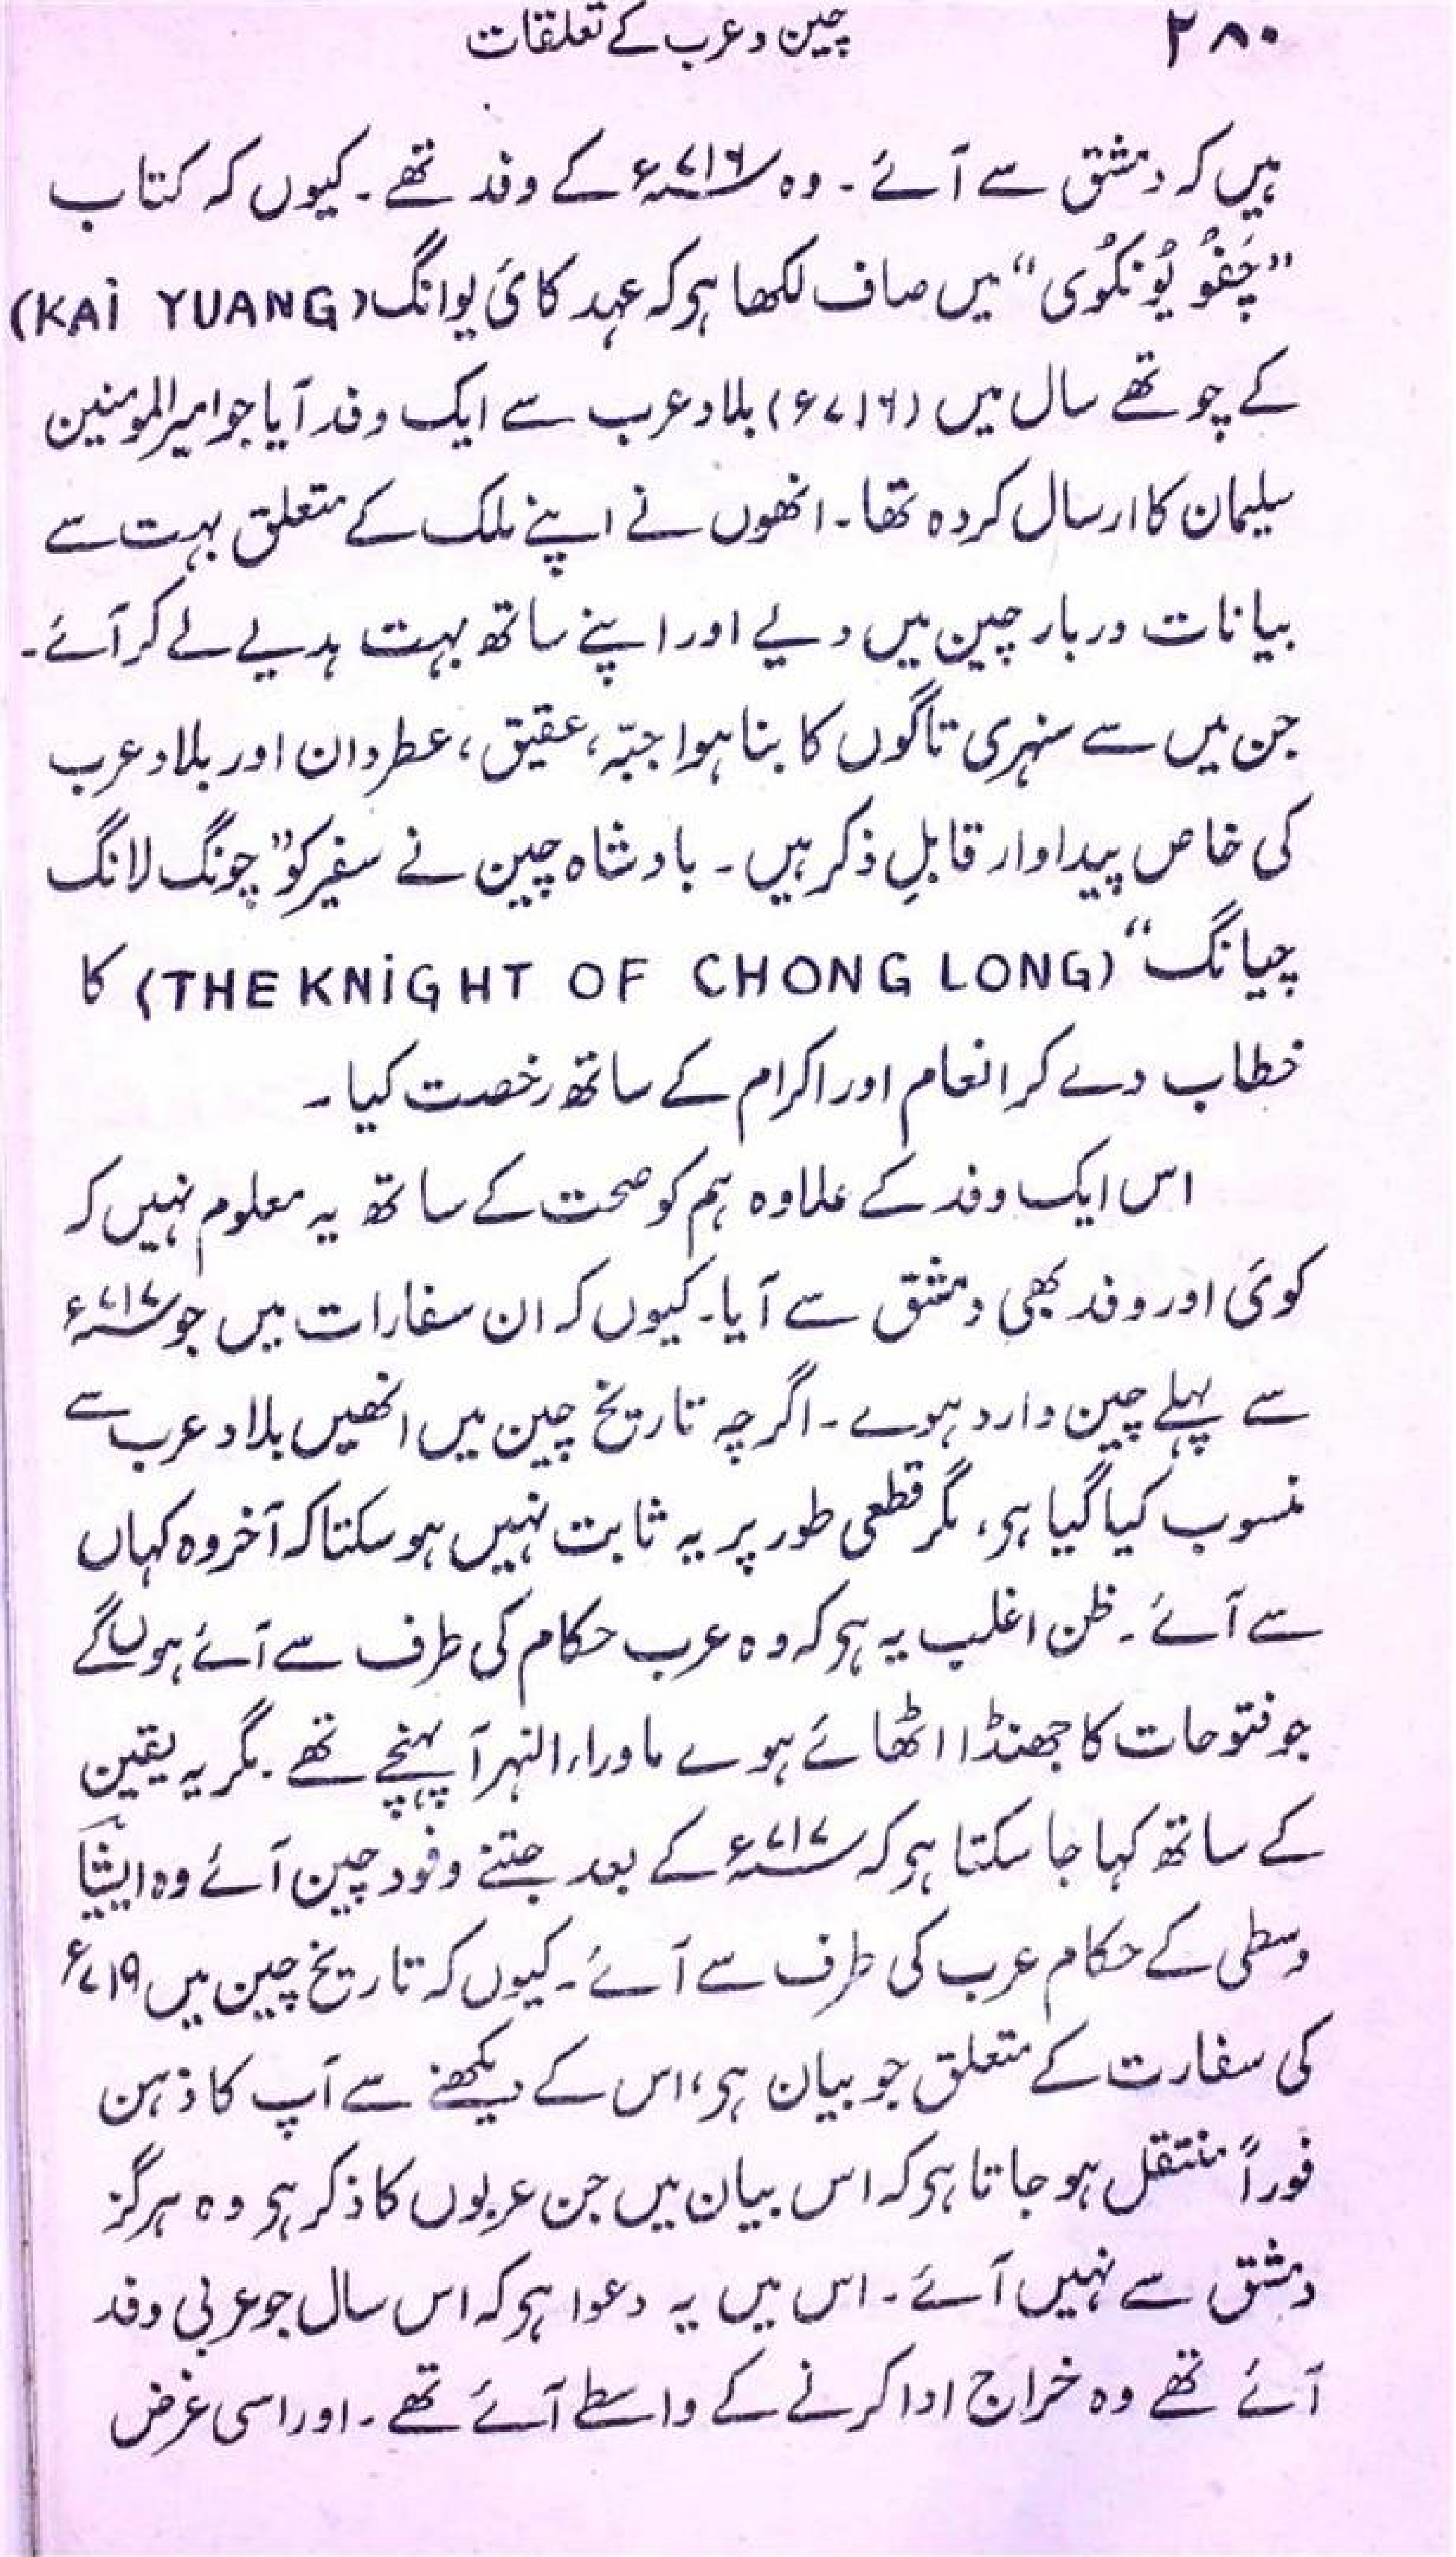 ۲۸۰ چین و عرب کے تعلقات
ہیں کہ دمشق سے آئے ۔ وہ ۷۱۶ء کے وفد تھے ۔ کیوں کہ کتاب
”چَفوُ یُونکوُی“ میں صاف لکھا ہی کہ عہد کائ یوانگ (KAi YUANG)
کے چوتھے سال میں (۷۱۶ء) بلاد عرب سے ایک وفد آیا جو امیر المومنین
سلیمان کا ارسال کردہ تھا ۔ انھوں نے اپنے ملک کے متعلق بہت سے
بیانات دربار چین میں دیے اور اپنے ساتھ بہت ہدیے لے کر آئے ۔
جن میں سے سنہری تاگوں کا بنا ہوا جبّہ ، عقیق ، عطردان اور بلاد عرب
کی خاص پیداوار قابلِ ذکر ہیں ۔ بادشاہ چین نے سفیر کو ”چونگ لانگ
چیانگ“ (THE KNiGHT OF CHONG LONG) کا
خطاب دے کر انعام اور اکرام کے ساتھ رخصت کیا ۔
اس ایک وفد کے علاوہ ہم کو صحت کے ساتھ یہ معلوم نہیں کہ
کوئ اور وفد بھی دمشق سے آیا ۔ کیوں کہ ان سفارات میں جو ۷۱۷ء
سے پہلے چین وارد ہوے ۔ اگرچہ تاریخ چین میں انھیں بلاد عرب سے
منسوب کیا گیا ہی ، مگر قطعی طور پر یہ ثابت نہیں ہو سکتا کہ آخر وہ کہاں
سے آئے ۔ ظن اغلب یہ ہی کہ وہ عرب حکام کی طرف سے آئے ہوں گے
جو فتوحات کا جھنڈا اٹھائے ہوے ماوراء النہر آ پہنچے تھے ۔ مگر یہ یقین
کے ساتھ کہا جا سکتا ہی کہ ۷۱۷ء کے بعد جتنے وفود چین آئے وہ ایشیا
وسطی کے حکام عرب کی طرف سے آئے ۔ کیوں کہ تاریخ چین میں ۷۱۹ء
کی سفارت کے متعلق جو بیان ہی ، اس کے دیکھنے سے آپ کا ذہن
فوراً منتقل ہو جاتا ہی کہ اس بیان میں جن عربوں کا ذکر ہی وہ ہرگز
دمشق سے نہیں آئے ۔ اس میں یہ دعوا ہی کہ اس سال جو عربی وفد
آئے تھے وہ خراج ادا کرنے کے واسطے آئے تھے ۔ اور اسی غرض